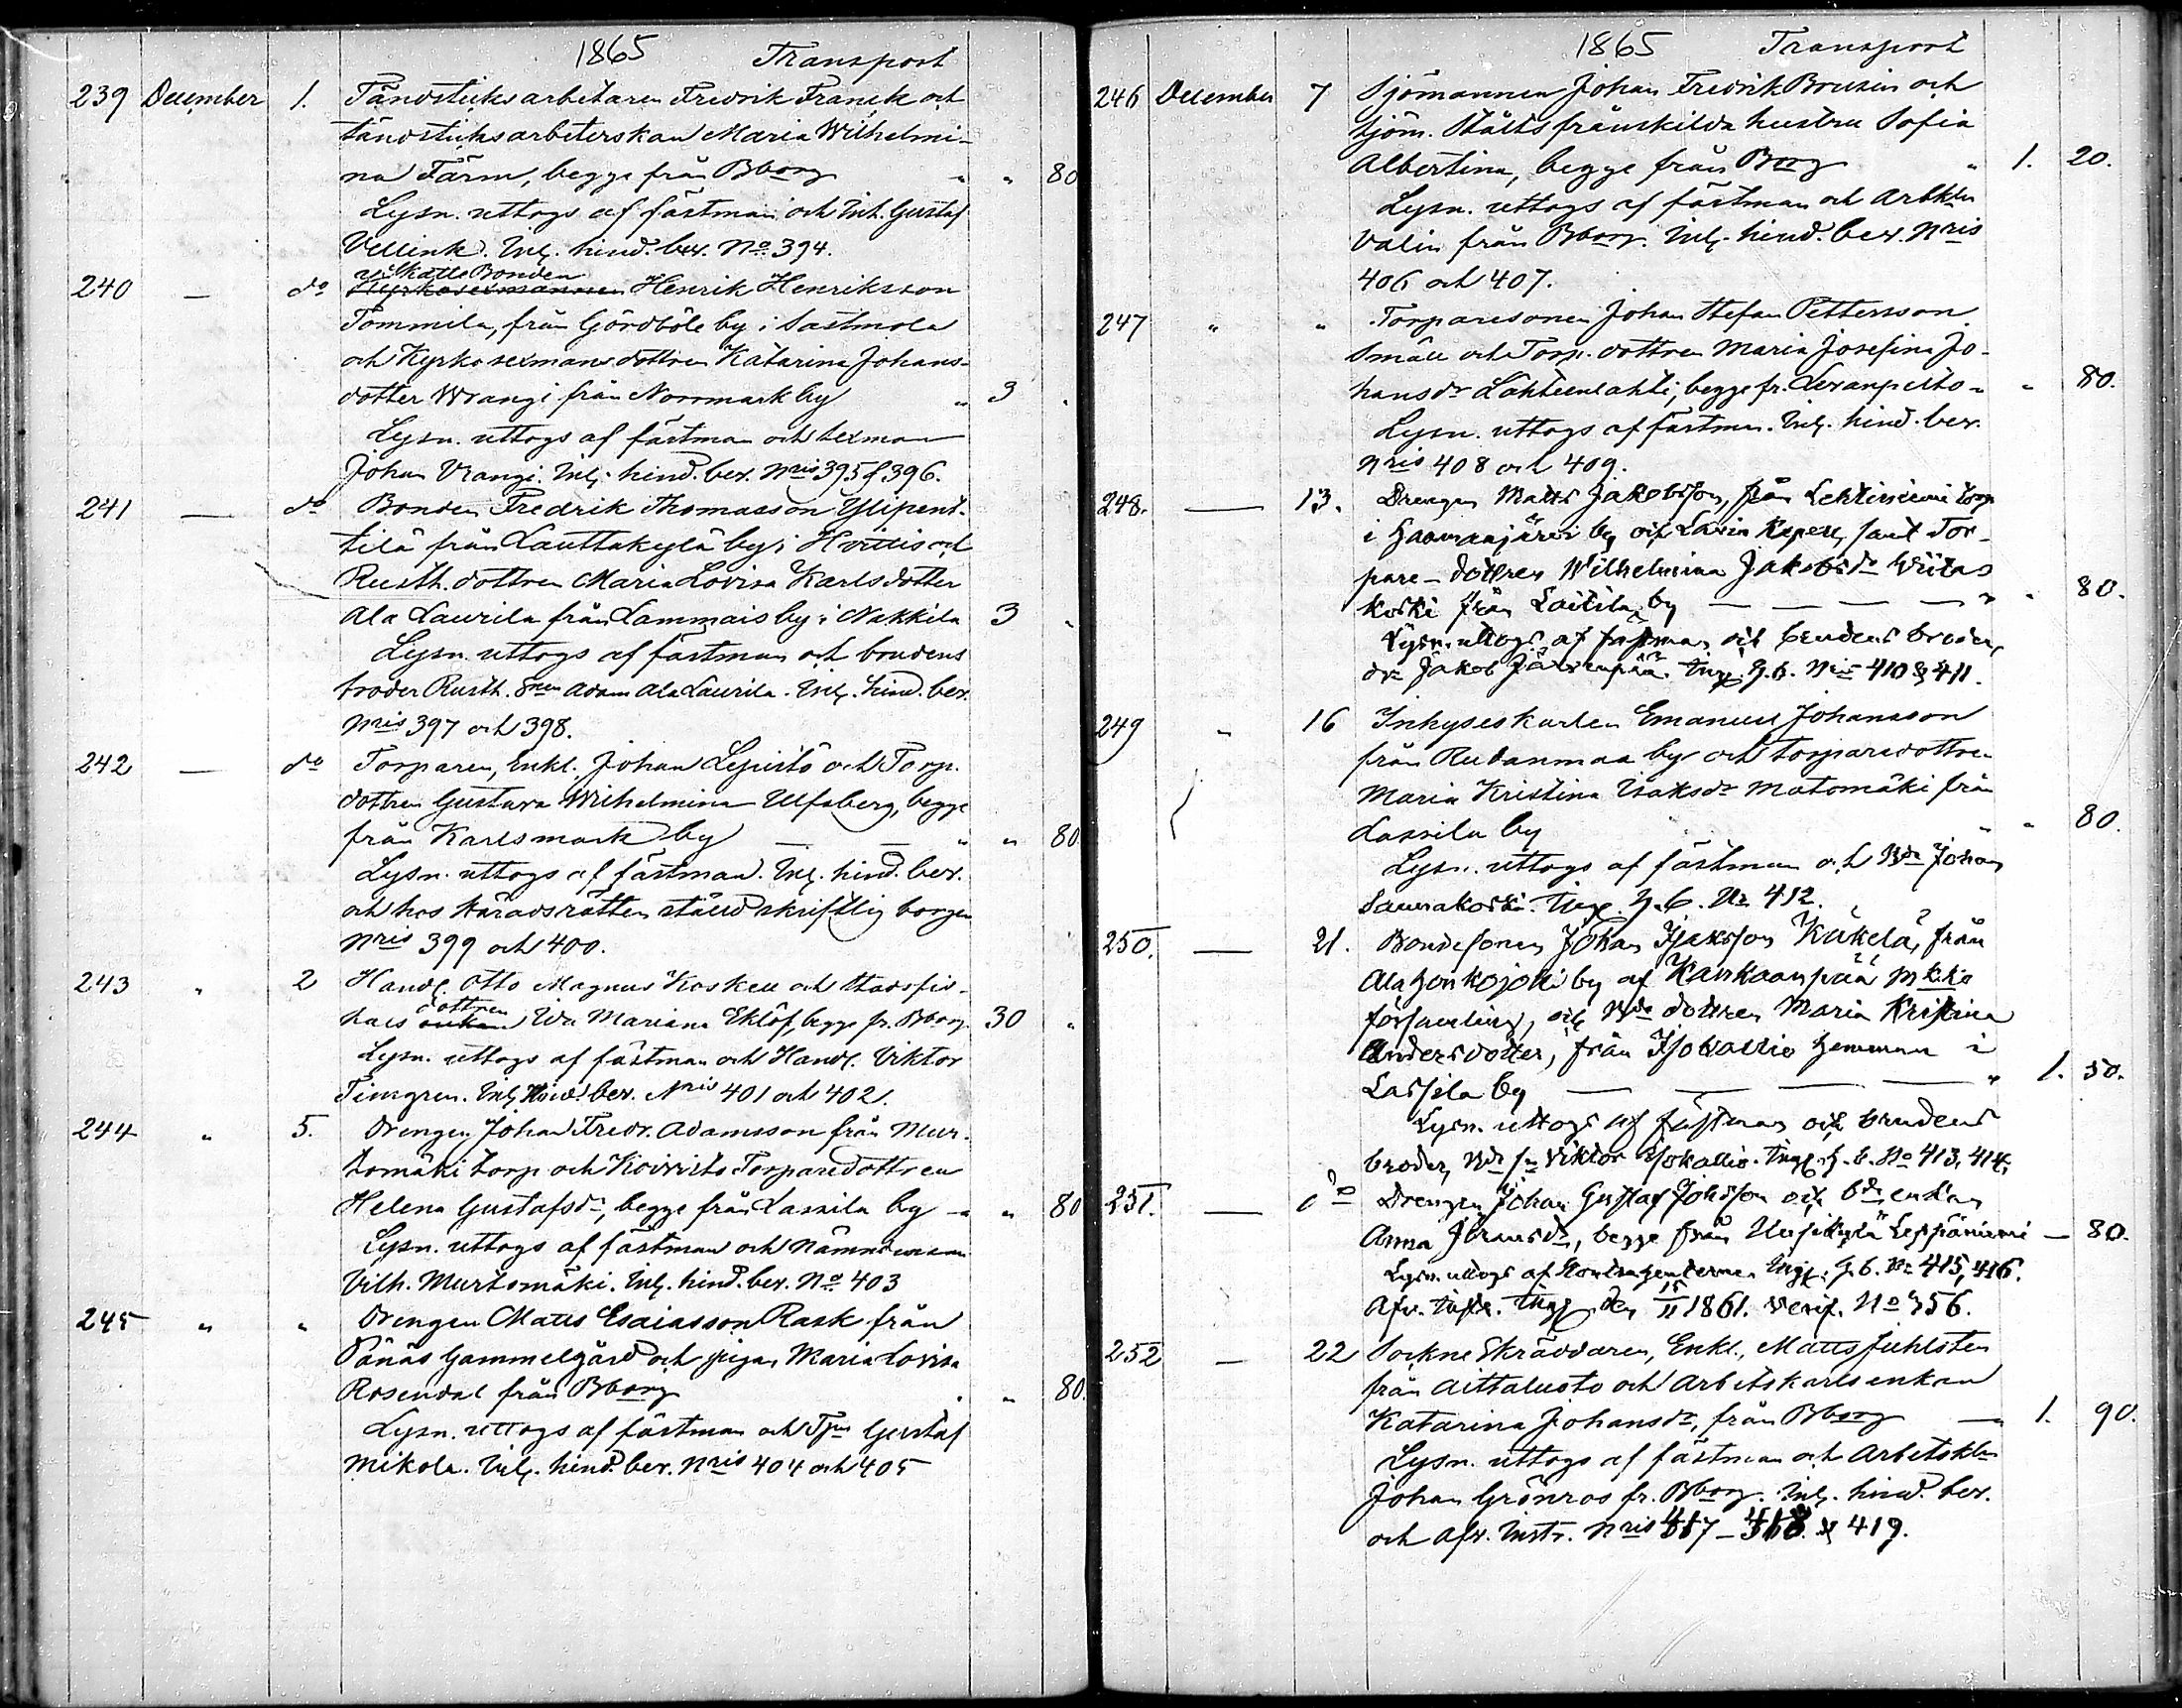 1865 Transport
239 December 1. Tändsticksarbetaren Fredrik Franck och
tändsticksarbeterskan Maria Wilhelmi-
na Färm, begge från Bborg " " 80
Lysn. uttogs af fästman och Inh. Gustaf
Vellink. Inl. hind. bev. No. 394.
Skatte Bonden
240 — do Kyrkosexmannen Henrik Henriksson
Tommila, från Gördböle by i Sastmola
och Kyrkosexmansdottren Katarina Johans-
dotter Wrangi från Norrmark by " 3 "
Lysn. uttogs af fästman och sexman
Johan Vrangi. Inl. hind. bev. Nris 395 & 396.
241 — do Bonden Fredrik Thomasson Ylipent-
tilä från Lauttakylä by i Hvittis och
Rusth. dottren Maria Lovisa Karlsdotter
Ala Laurila från Lammais by i Nakkila 3 "
Lysn. uttogs af fästman och brudens
broder Rusth. snen Adam Ala Laurila. Inl. hind. bev.
Nris 397 och 398.
242 — do Torparen, Enkl. Johan Lepistö och Torp.
dottren Gustava Wilhelmina Ulfsberg, begge
från Karlsmark by — — " " 80
Lysn. uttogs af fästman. Inl. hind. bev.
och hos Häradsrätten ställd skriftlig borgen
Nris 399 och 400.
243 " 2 Handl. Otto Magnus Koskell och Stadsfis-
dottren
kals enkan Ida Mariana Eklöf, begge fr. Bborg. 30 "
Lysn. uttogs af fästman och Handl. Viktor
Timgren. Inl. Hind. bev. Nris 401 och 402.
244 " 5. Drengen Johan Fredr. Adamsson från Mur-
tomäki torp och Koivisto Torparedottren
Helena Gustafsdr, begge från Lassila by " " 80
Lysn. uttogs af fästman och Nämndeman
Vilh. Murtomäki. Inl. hind. bev. No. 403
245 " " Drengen Matts Esaiasson Rask från
Pånäs Gammelgård och pigan Maria Lovisa
Rosendal från Bborg " " 80.
Lysn. uttogs af fästman och Gustaf
Mikola. Inl. hind. bev. Nris 404 och 405
1865 Transport
246 December 7 Sjömannen Johan Fredrik Brusin och
sjöm. Stålts frånskilda hustru Sofia
Albertina, begge från Borg " 1. 20.
Lysn. uttogs af fästman och Arbkln
Valin från Bborg. Inl. hind. bev. Nris
406 och 407.
247 " " Torparesonen Johan Stefan Pettersson
Småll och Torp. dottren Maria Josefina Jo-
hansdr Lähteenlahti, begge fr. Levanpelto " " 80.
Lysn. uttogs af fästman. Inl. hind. bev.
Nris 408 och 409.
248. — 13. Drengen Matts Jakobsson, från Lehtiniemi torp
i Harmaajärvi by och Lavia Kapell, samt Tor-
pare-dottren Wilhelmina Jakobsdr Wiitas
koski från Laitila by — — — " " 80.
Lysn. uttogs af fästman och brudens broder,
dr. Jakob Järvenpää. Ingf. H. b. Nris 410 & 411.
249 " 16 Inhyseskarlen Emanuel Johansson
från Rudanmaa by och torparedottren
Maria Kristina Isaksdr Matomäki från
Lassila by " " 80.
Lysn. uttogs af fästman och Bdn Johan
Saunakoski. Ingf. H. b. No 412.
250. — 21. Bondesonen Johan Isaksson Käkelä, från
Ala Honkojoki by af Kankaanpää mkko
församling, och Bde dottren Maria Kristina
Andersdotter, från Isokallio hemman i
Lassila by — — — " 1. 50.
Lysn. uttogs af fästman och brudens
broder, Bde sn Viktor Isokallio. Ingf. H. b. No 413, 414.
251. — do Drengen Johan Gustaf Johsson och bde enkan
Anna Jöransdr, begge från Uusikylä Leppäniemi — 80.
Lysn. uttogs af Kontrahenterne. Ingf. H. b. No 415, 416.
Afv. Instr. Ingf. den 15/11 1861. Verif. No 356.
252 — 22 Sockne Skräddaren, Enkl., Matts Juhlsten
från Aittaluoto och Arbetskarlsenkan
Katarina Johansdr, från Bborg — 1. 90.
Lysn. uttogs af fästman och Arbetskln
Johan Grönroos fr. Bborg. Inl. hind. bev.
och Afv. Instr. Nris 417 - 418 & 419.